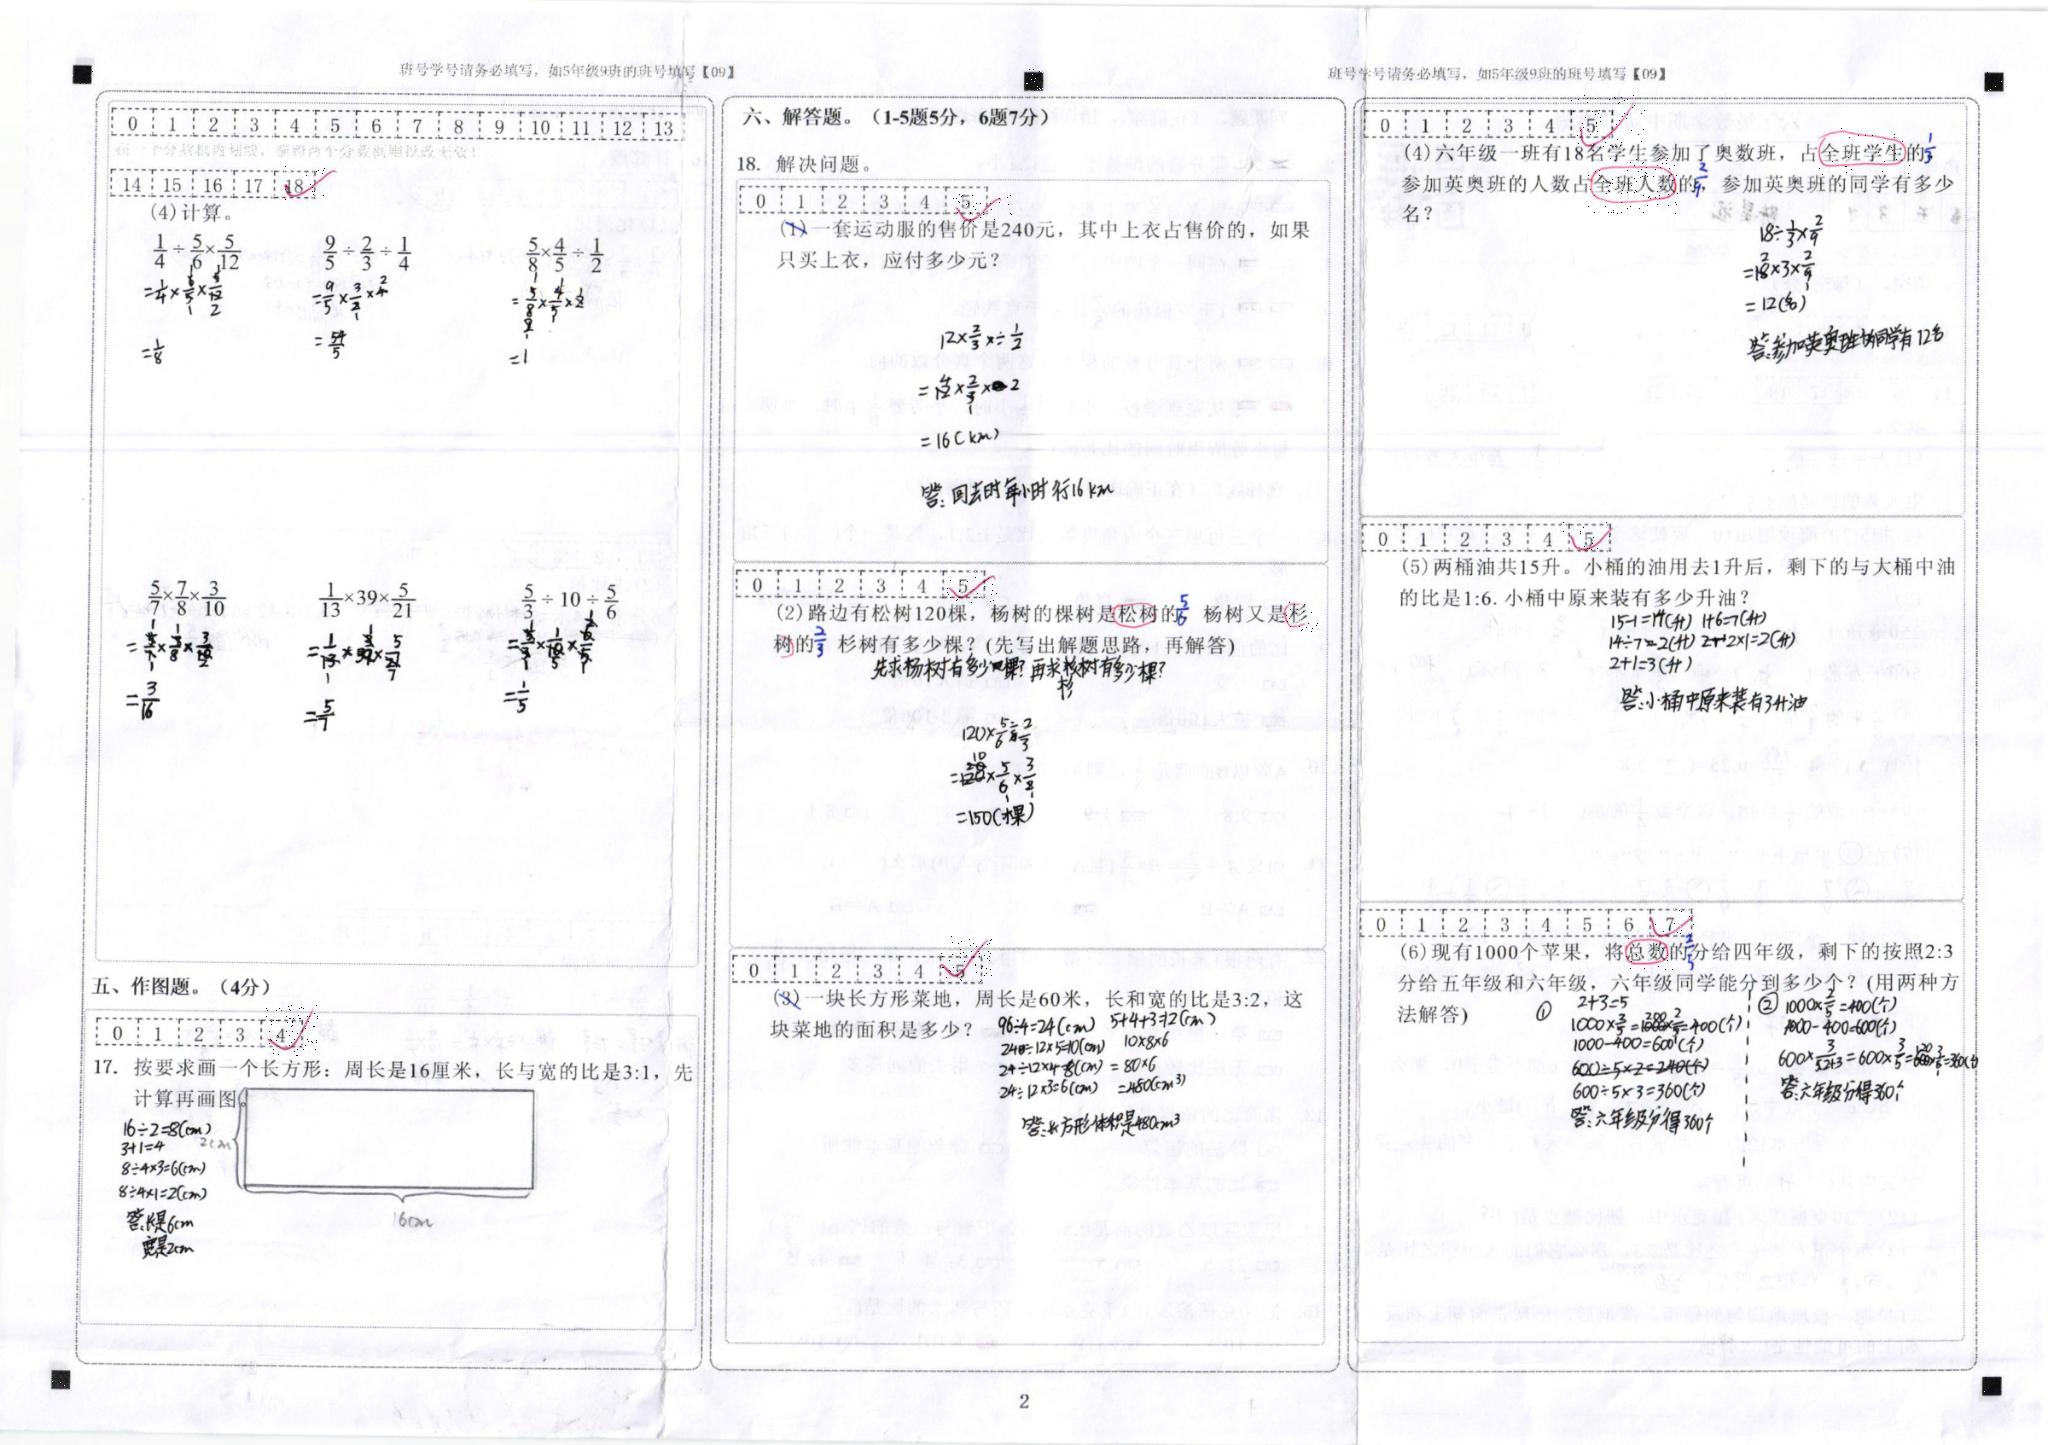 班号学号请务必填写，如5年级9班的班号填写【09】
班号学号请务必填写，如5年级9班的班号填写【09】
0 1 2 3 4 5 6 7 8 9 10 11 12 13
14 15 16 17 18
(4)计算。
1/4÷5/6×5/12 9/5÷2/3÷1/4 5/8×4/5÷1/2
=1/4×6/5×5/12 =9/5×3/2×4 =5/8×4/5×2
=1/8 =54/5 =1
5/7×7/8×3/10 1/13×39×5/21 5/3÷10÷5/6
=5/1×1/8×3/10 =1/13×39×5/21 =5/3×1/10×6/5
=3/16 =5/7 =1/5
五、作图题。（4分）
0 1 2 3 4
17. 按要求画一个长方形：周长是16厘米，长与宽的比是3:1，先
计算再画图。
16÷2=8(cm)
3+1=4
8÷4×3=6(cm)
8÷4×1=2(cm)
答:长是6cm
宽是2cm
2cm
16cm
六、解答题。（1-5题5分，6题7分）
18. 解决问题。
0 1 2 3 4 5
(1)一套运动服的售价是240元，其中上衣占售价的，如果
只买上衣，应付多少元？
12×2/3×÷1/2
=12×2/3×2
=16(km)
答:回去时每小时行16km
0 1 2 3 4 5
(2)路边有松树120棵，杨树的棵树是松树的5/6 杨树又是杉
树的2/3 杉树有多少棵？(先写出解题思路，再解答)
先求杨树有多少棵?再求杉树有多少棵?
120×5/6÷2/3
=120×5/6×3/2
=150(棵)
0 1 2 3 4 5
(3)一块长方形菜地，周长是60米，长和宽的比是3:2，这
块菜地的面积是多少？
96÷4=24(cm) 5+4+3=12(cm)
24÷12×5=10(cm) 10×8×6
24÷12×4=8(cm) =80×6
24÷12×3=6(cm) =480(cm³)
答:长方形体积是480cm³
0 1 2 3 4 5
(4)六年级一班有18名学生参加了奥数班，占全班学生的1/3
参加英奥班的人数占全班人数的2/9 参加英奥班的同学有多少
名？
18÷1/3×2/9
=18×3×2/9
=12(名)
答:参加英奥班的同学有12名
0 1 2 3 4 5
(5)两桶油共15升。小桶的油用去1升后，剩下的与大桶中油
的比是1:6. 小桶中原来装有多少升油？
15-1=14(升) 1+6=7(升)
14÷7=2(升) 2×1=2(升)
2+1=3(升)
答:小桶中原来装有3升油
0 1 2 3 4 5 6 7
(6)现有1000个苹果，将总数的2/5分给四年级，剩下的按照2:3
分给五年级和六年级，六年级同学能分到多少个？(用两种方
法解答)
① 2+3=5
1000×2/5=1000×2/5=400(个)
1000-400=600(个)
600÷5×2=240(个)
600÷5×3=360(个)
答:六年级分得360个
② 1000×2/5=400(个)
1000-400=600(个)
600×3/2+3=600×3/5=600×3/5=360(个)
答:六年级分得360个
2